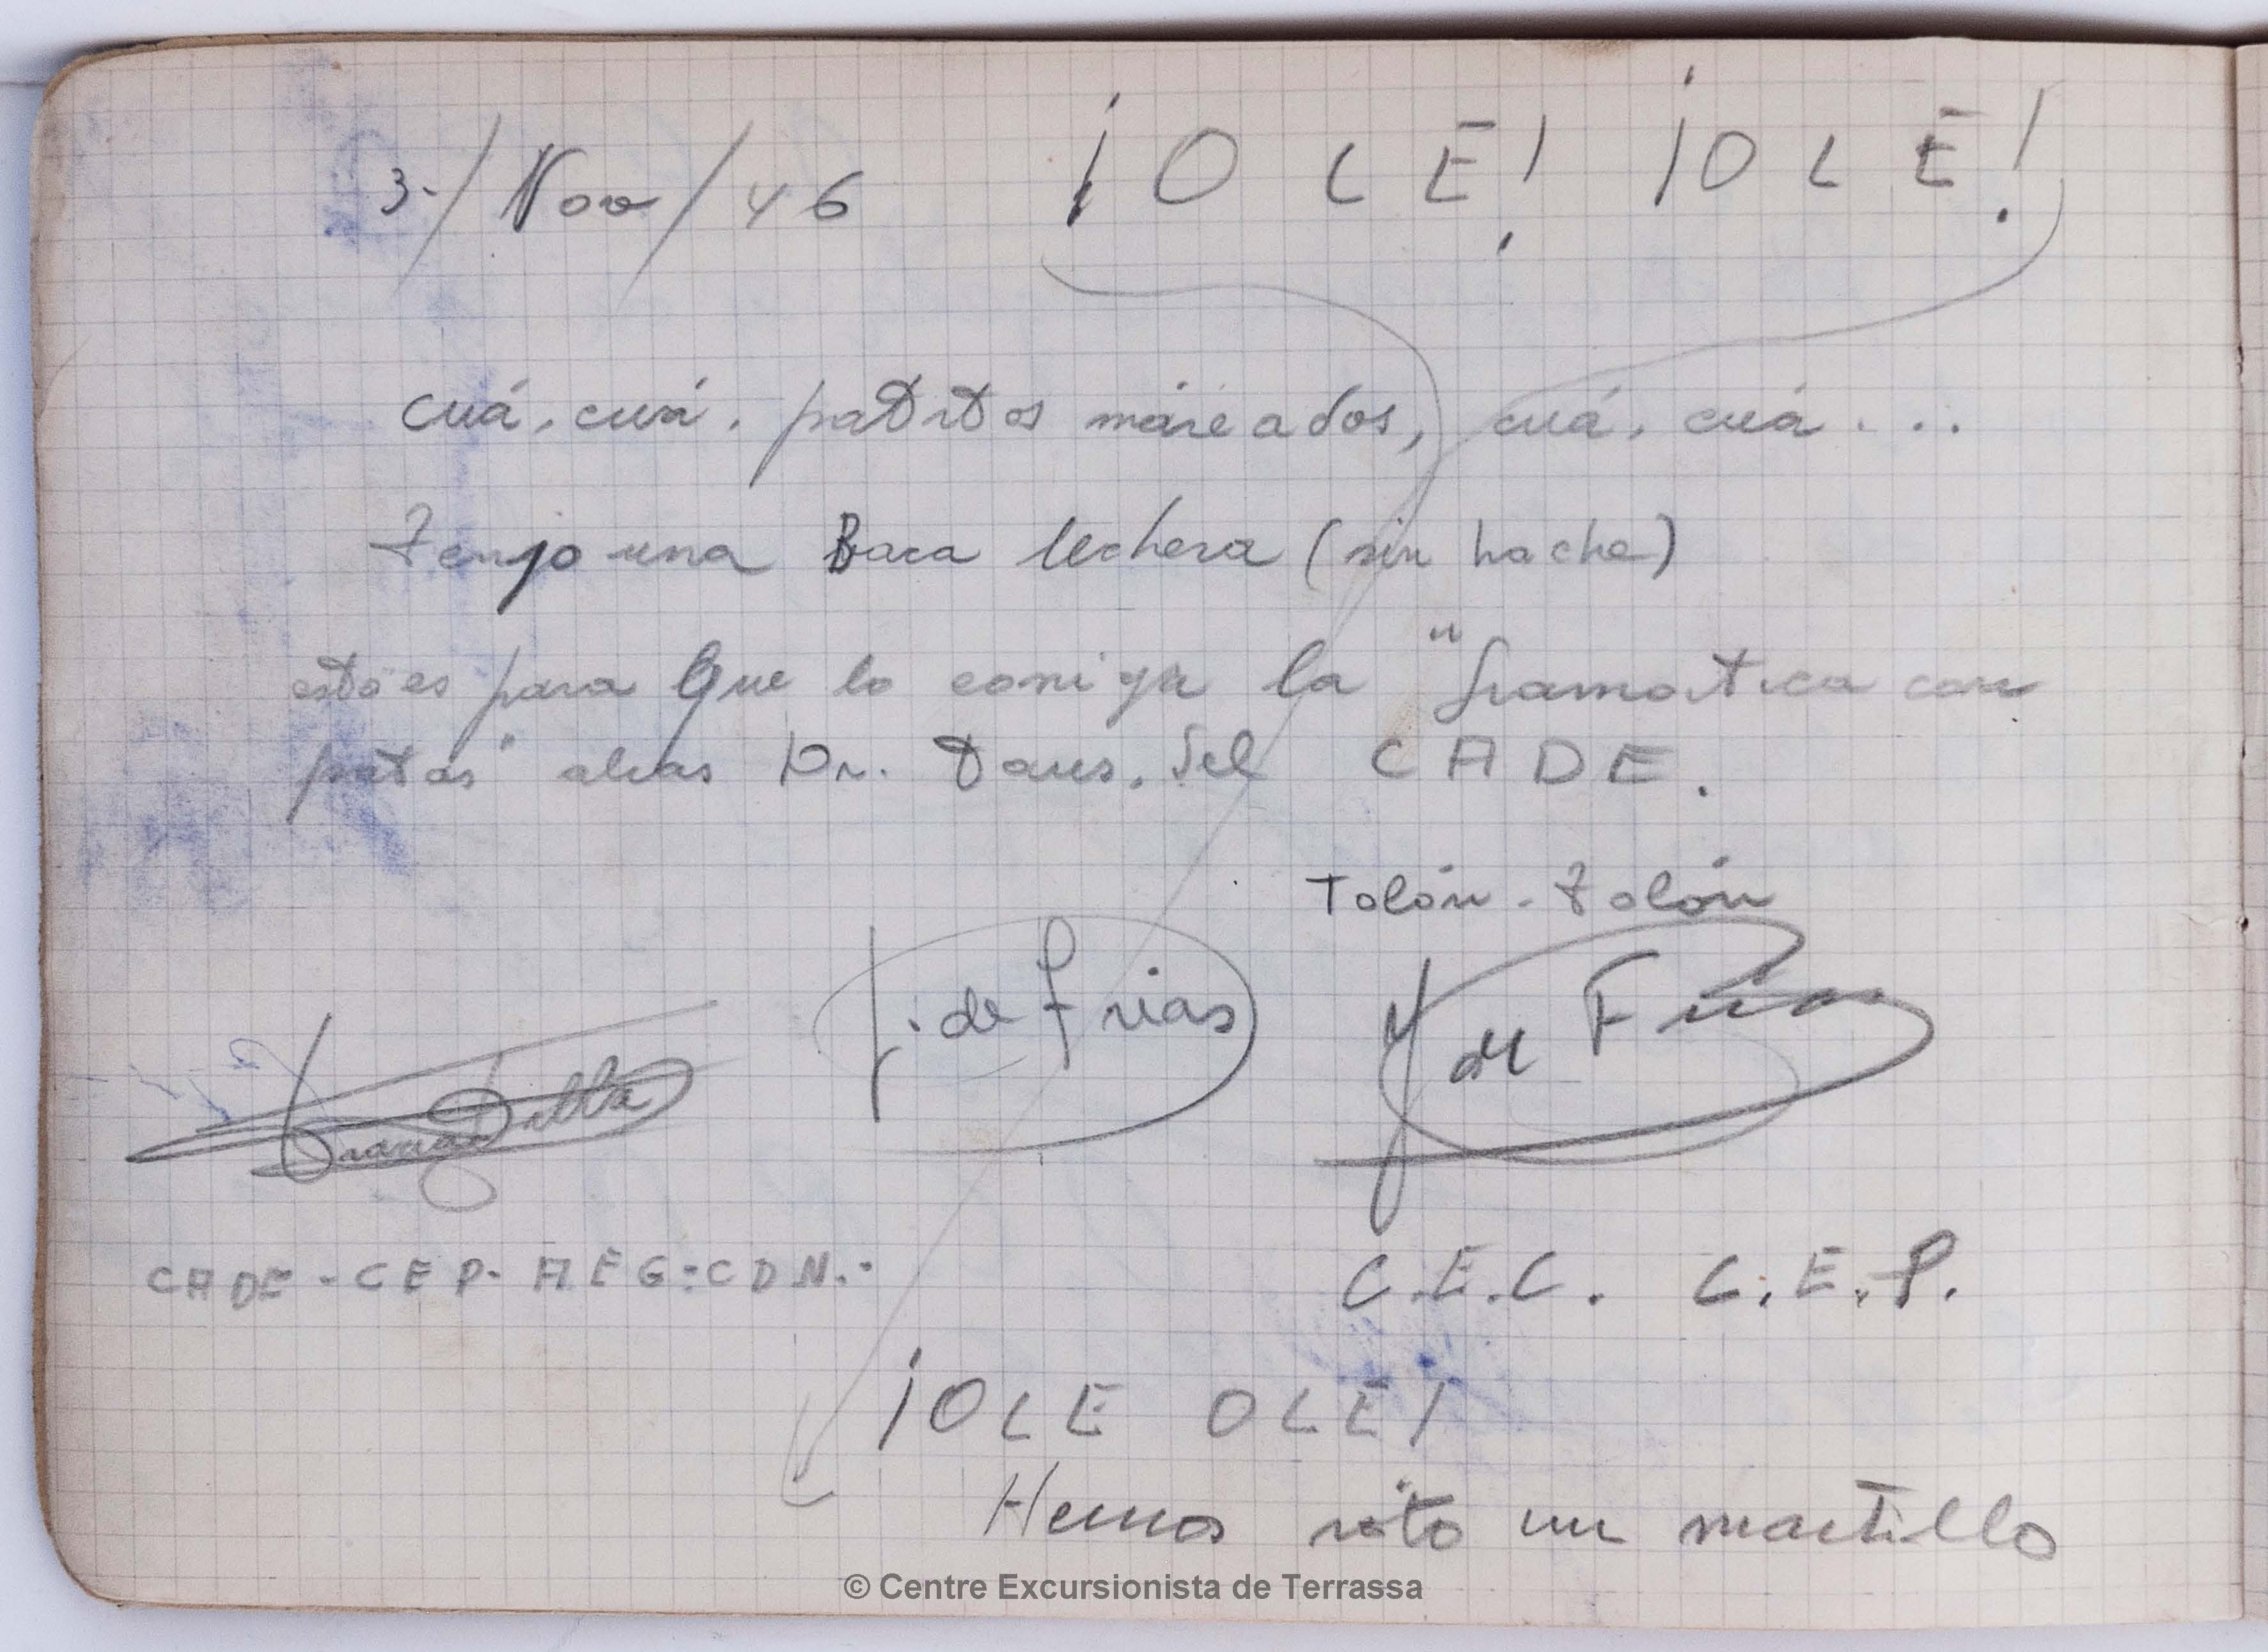 3-/Nov/46 ¡OLÉ! ¡OLÉ!
cuá, cuá, patitos mareados, cuá, cuá...
Tenjo una Baca lechera (sin hache)
esto es para que lo corrija la "Gramatica con
patas" alias Dr. Daus. del CADE.
Tolón-Tolón
J. de Frias
J de Frias
CADE-CEP-AEG-CDN.-
C.E.C. C.E.P.
¡OLE OLE!
Hemos roto un martillo
© Centre Excursionista de Terrassa